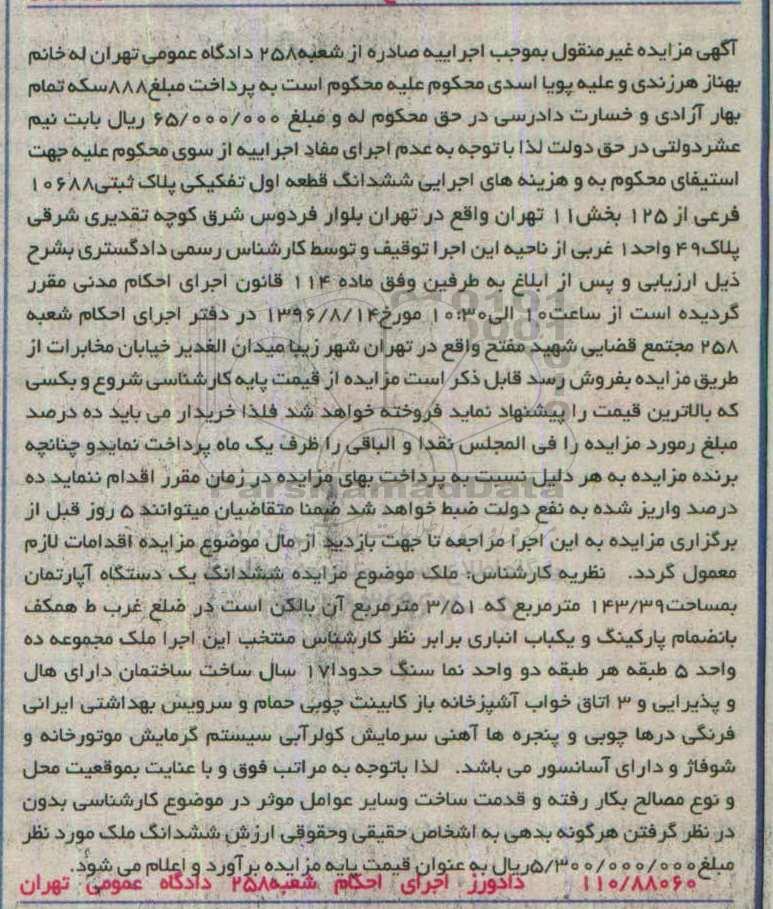 آگهی مزایده غیرمنقول بموجب اجراییه صادره از شعبه۲۵۸ دادگاه عمومی تهران له خانم
بهناز هرزندی و علیه پویا اسدی محکوم علیه محکوم است به پرداخت مبلغ۸۸۸سکه تمام
بهار آزادی و خسارت دادرسی در حق محکوم له و مبلغ ۶۵/۰۰۰/۰۰۰ ریال بابت نیم
عشردولتی در حق دولت لذا با توجه به عدم اجرای مفاد اجراییه از سوی محکوم علیه جهت
استیفای محکوم به و هزینه های اجرایی ششدانگ قطعه اول تفکیکی پلاک ثبتی۱۰۶۸۸
فرعی از ۱۲۵ بخش۱۱ تهران واقع در تهران بلوار فردوس شرق کوچه تقدیری شرقی
پلاک۴۹ واحد۱ غربی از ناحیه این اجرا توقیف و توسط کارشناس رسمی دادگستری بشرح
ذیل ارزیابی و پس از ابلاغ به طرفین وفق ماده ۱۱۴ قانون اجرای احکام مدنی مقرر
گردیده است از ساعت۱۰ الی۱۰:۳۰ مورخ۱۳۹۶/۸/۱۴ در دفتر اجرای احکام شعبه
۲۵۸ مجتمع قضایی شهید مفتح واقع در تهران شهر زیبا میدان الغدیر خیابان مخابرات از
طریق مزایده بفروش رسد قابل ذکر است مزایده از قیمت پایه کارشناسی شروع و بکسی
که بالاترین قیمت را پیشنهاد نماید فروخته خواهد شد فلذا خریدار می باید ده درصد
مبلغ رمورد مزایده را فی المجلس نقدا و الباقی را ظرف یک ماه پرداخت نمایدو چنانچه
برنده مزایده به هر دلیل نسبت به پرداخت بهای مزایده در زمان مقرر اقدام ننماید ده
درصد واریز شده به نفع دولت ضبط خواهد شد ضمنا متقاضیان میتوانند ۵ روز قبل از
برگزاری مزایده به این اجرا مراجعه تا جهت بازدید از مال موضوع مزایده اقدامات لازم
معمول گردد. نظریه کارشناس: ملک موضوع مزایده ششدانگ یک دستگاه آپارتمان
بمساحت۱۴۳/۳۹ مترمربع که ۳/۵۱ مترمربع آن بالکن است در ضلع غرب ط همکف
بانضمام پارکینگ و یکباب انباری برابر نظر کارشناس منتخب این اجرا ملک مجموعه ده
واحد ۵ طبقه هر طبقه دو واحد نما سنگ حدودا۱۷ سال ساخت ساختمان دارای هال
و پذیرایی و ۳ اتاق خواب آشپزخانه باز کابینت چوبی حمام و سرویس بهداشتی ایرانی
فرنگی درها چوبی و پنجره ها آهنی سرمایش کولرآبی سیستم گرمایش موتورخانه و
شوفاژ و دارای آسانسور می باشد. لذا باتوجه به مراتب فوق و با عنایت بموقعیت محل
و نوع مصالح بکار رفته و قدمت ساخت وسایر عوامل موثر در موضوع کارشناسی بدون
در نظر گرفتن هرگونه بدهی به اشخاص حقیقی وحقوقی ارزش ششدانگ ملک مورد نظر
مبلغ۵/۳۰۰/۰۰۰/۰۰۰ریال به عنوان قیمت پایه مزایده برآورد و اعلام می شود.
۱۱۰/۸۸۰۶۰ دادورز اجرای احکام شعبه۲۵۸ دادگاه عمومی تهران
ParsNamadData